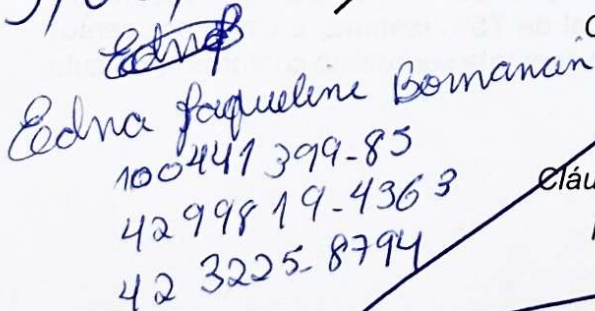 Edna
Edna Jaqueline Bornancin
100441399-85
42 99819-4363
42 3225-8794
Cláu